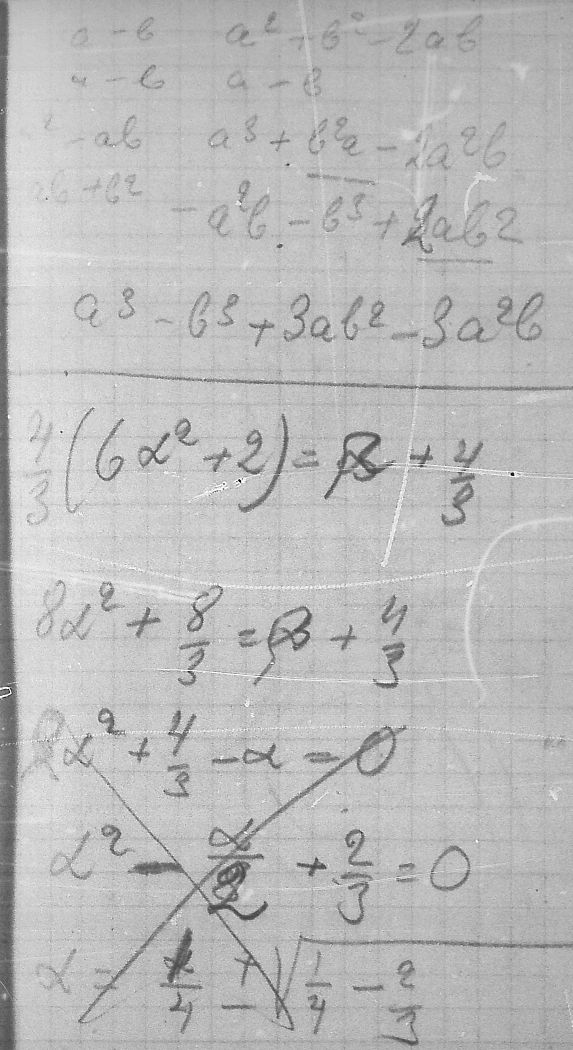 a - b    a² + b² - 2ab
a - b    a - b
² - ab    a³ + b²a - 2a²b
ab + b²    - a²b - b³ + 2ab²
a³ - b³ + 3ab² - 3a²b
4/3 (6α² + 2) = β + 4/3
8α² + 8/3 = β + 4/3
2α² + 4/3 - α = 0
α² - α/2 + 2/3 = 0
α = 1/4 ± √1/4 - 2/3